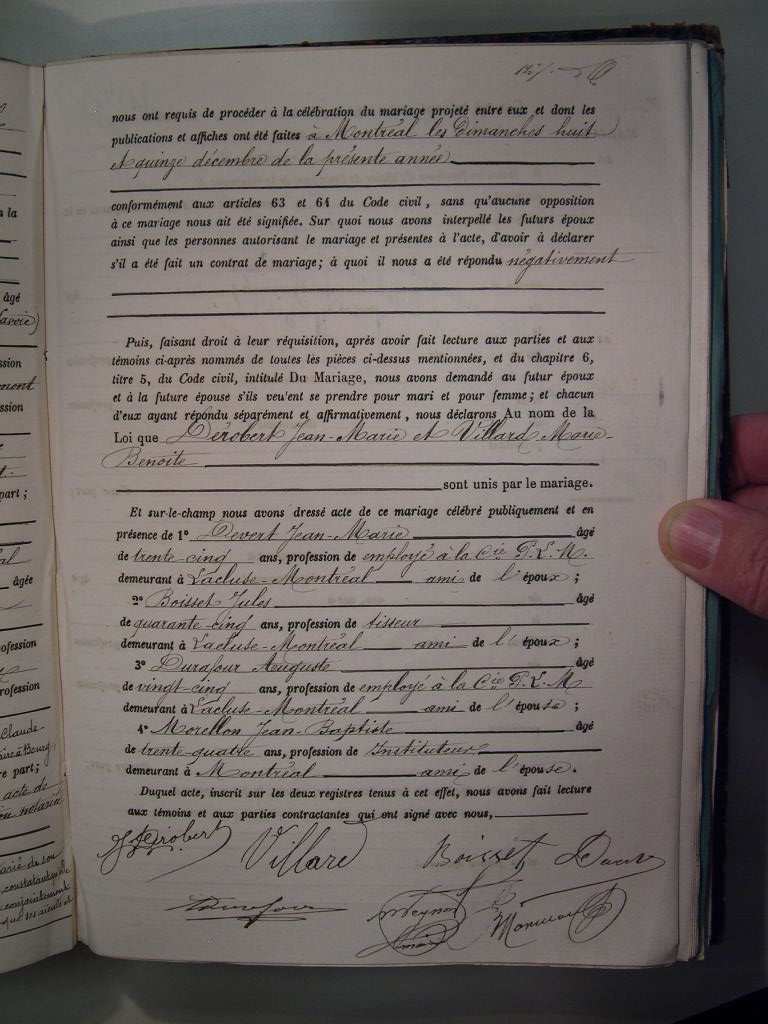 la
âgé
Savoie)
ssion
ment
ssion
part ;
al
âgée
ofession
rofession
Claude
part;
acte de
nous ont requis de procéder à la célébration du mariage projeté entre eux et dont les
publications et affiches ont été faites à Montréal les Dimanches huit
et quinze décembre de la présente année
conformément aux articles 63 et 64 du Code civil, sans qu'aucune opposition
à ce mariage nous ait été signifiée. Sur quoi nous avons interpellé les futurs époux
ainsi que les personnes autorisant le mariage et présentes à l'acte, d'avoir à déclarer
s'il a été fait un contrat de mariage; à quoi il nous a été répondu négativement
Puis, faisant droit à leur réquisition, après avoir fait lecture aux parties et aux
témoins ci-après nommés de toutes les pièces ci-dessus mentionnées, et du chapitre 6,
titre 5, du Code civil, intitulé Du Mariage, nous avons demandé au futur époux
et à la future épouse s'ils veulent se prendre pour mari et pour femme; et chacun
d'eux ayant répondu séparément et affirmativement, nous déclarons Au nom de la
Loi que Dérobert Jean-Marie et Villard Marie-
Benoite
sont unis par le mariage.
Et sur-le-champ nous avons dressé acte de ce mariage célébré publiquement et en
présence de 1° Devert Jean-Marie âgé
de trente cinq ans, profession de employé à la Cie P.L.M.
demeurant à Lacluse-Montréal ami de l'époux ;
2° Boisset Jules âgé
de quarante-cinq ans, profession de tisseur
demeurant à Lacluse-Montréal ami de l'époux ;
3° Durafour Auguste âgé
de vingt-cinq ans, profession de employé à la Cie P.L.M
demeurant à Lacluse-Montréal ami de l'épouse ;
4° Morellon Jean-Baptiste âgé
de trente-quatre ans, profession de Instituteur
demeurant à Montréal ami de l'épouse.
Duquel acte, inscrit sur les deux registres tenus à cet effet, nous avons fait lecture
aux témoins et aux parties contractantes qui ont signé avec nous,
Dérobert Villard Boisset
Durafour